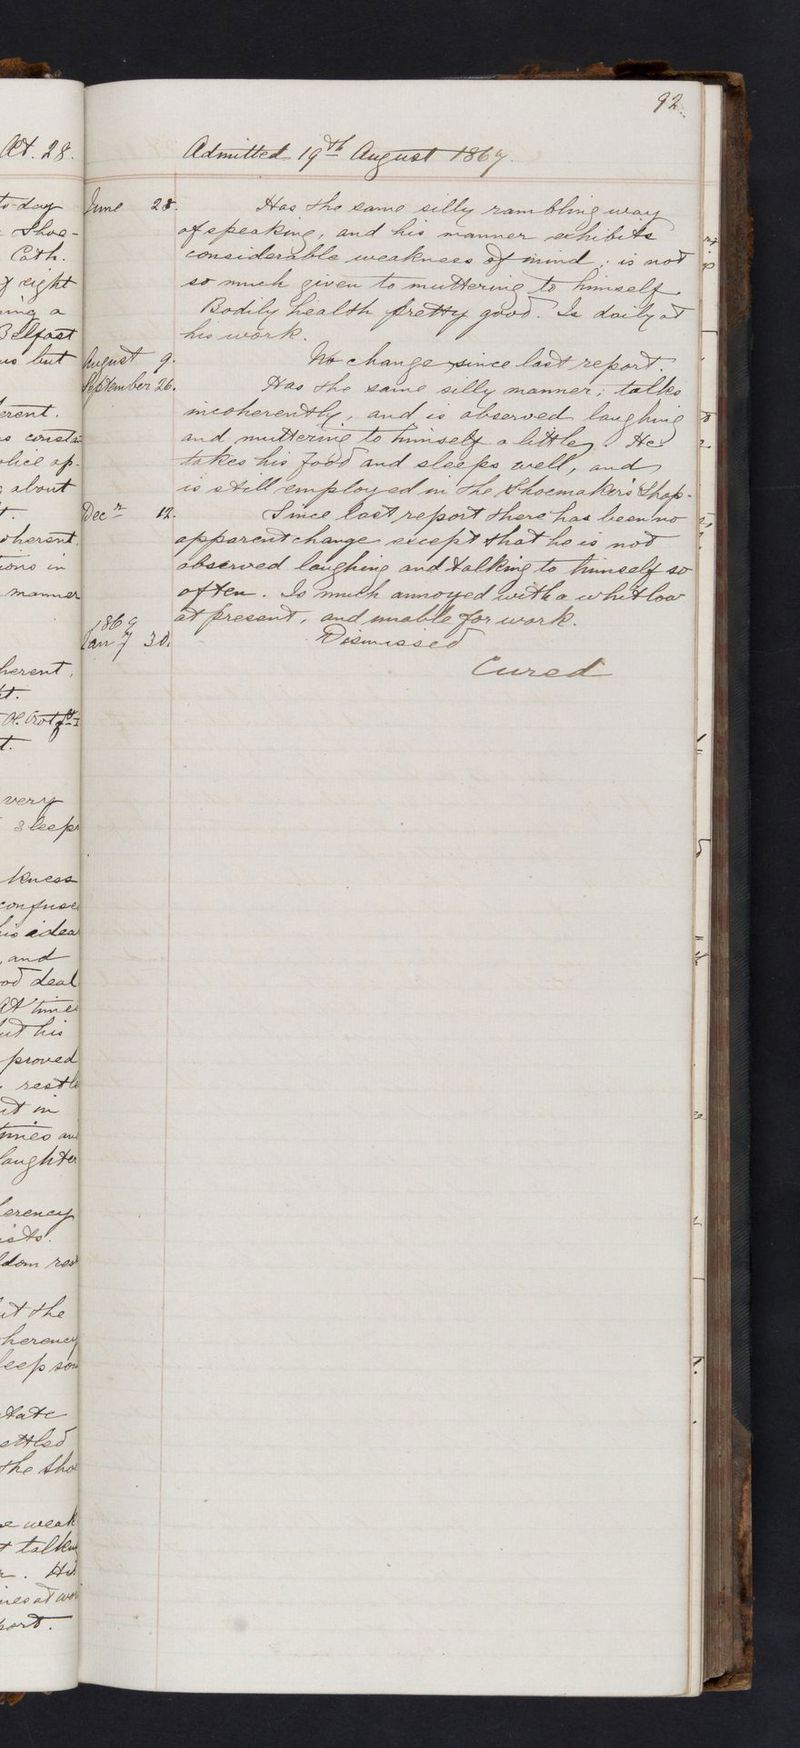 92.
Æt. 28.
Admitted 19th August 1867.
to-day
Shoe-
Cath.
right
ing a
Belfast
but
erent.
about
herent.
ions in
manner
herent.
very
sleeps
kness
confused
his idea
and
od deal
At time
ut his
proved
t in
times an
laughter
erency
ists.
ldom
ut the
herency
leep
state
ettled
the Sho
e weak
t talkin
port.
June 28. Has the same silly rambling way
of speaking, and his manner exhibits
considerable weakness of mind; is not
so much given to muttering to himself.
Bodily health pretty good. Is daily at
his work.
August 9. No change since last report.
September 26. Has the same silly manner; talks
incoherently, and is observed laughing
and muttering to himself a little. He
takes his food and sleeps well, and
is still employed in the Shoemaker's Shop.
Decr 12. Since last report there has been no
apparent change except that he is not
observed laughing and talking to himself so
often. Is much annoyed with a whitlow
at present, and unable for work.
1869
Jany 30. Dismissed
Cured